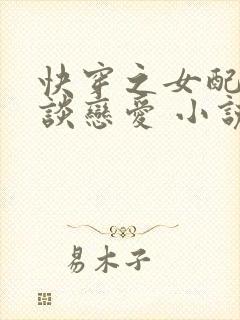 快穿之女配
談戀愛 小說
易木子